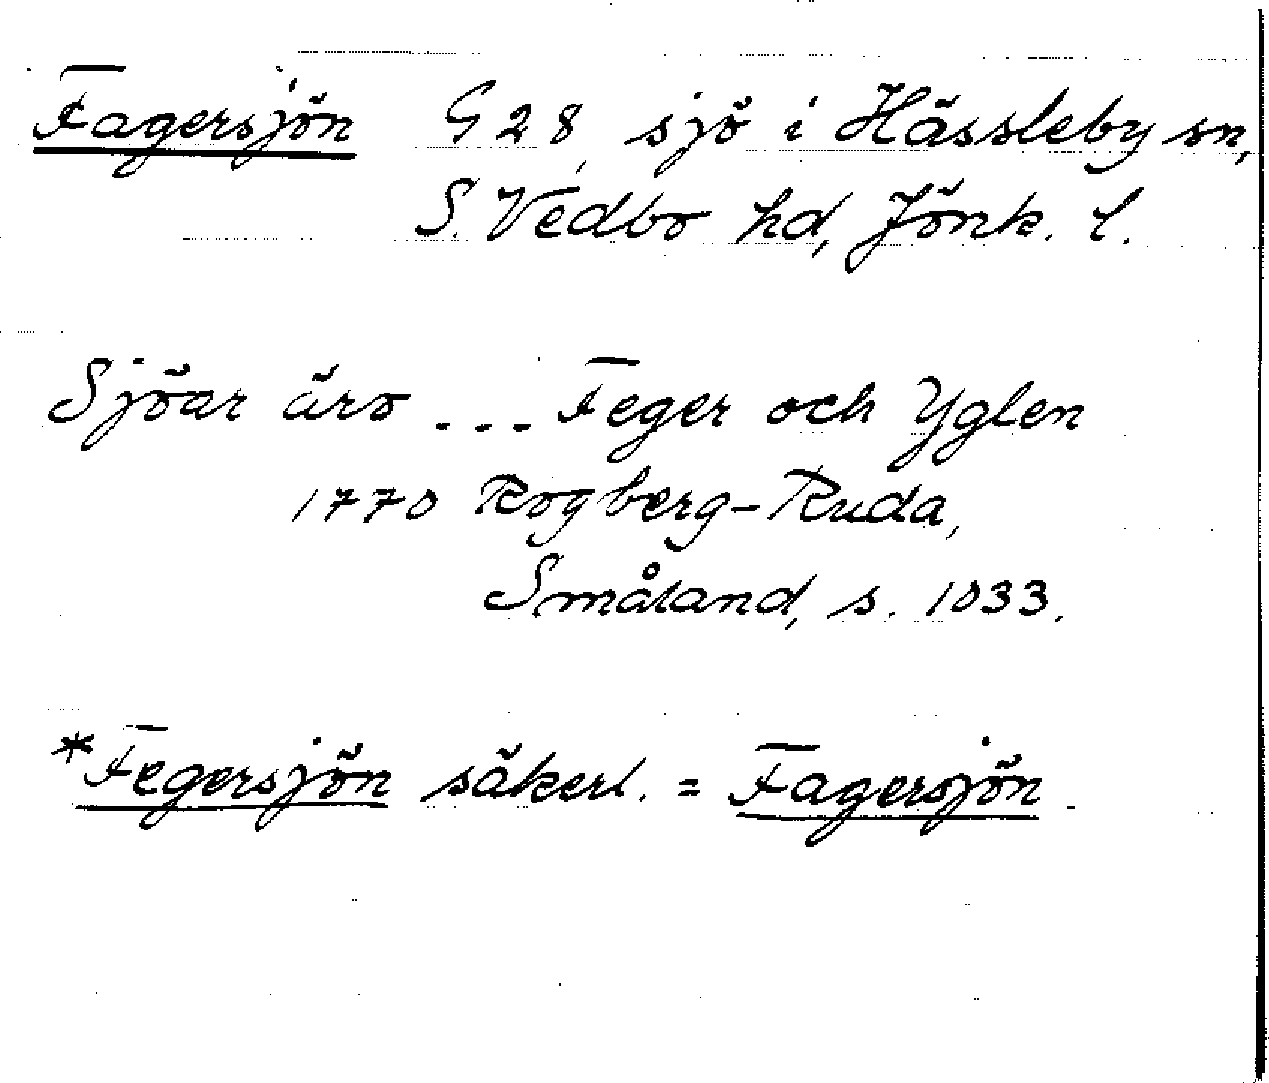 Fagersjön G 28, sjö i Hässleby sn,
S. Vedbo hd, Jönk. l.
Sjöar äro ... Feger och Yglen
1770 Rogberg-Ruda,
Småland, s. 1033.
*Fegersjön säkerl. = Fagersjön.